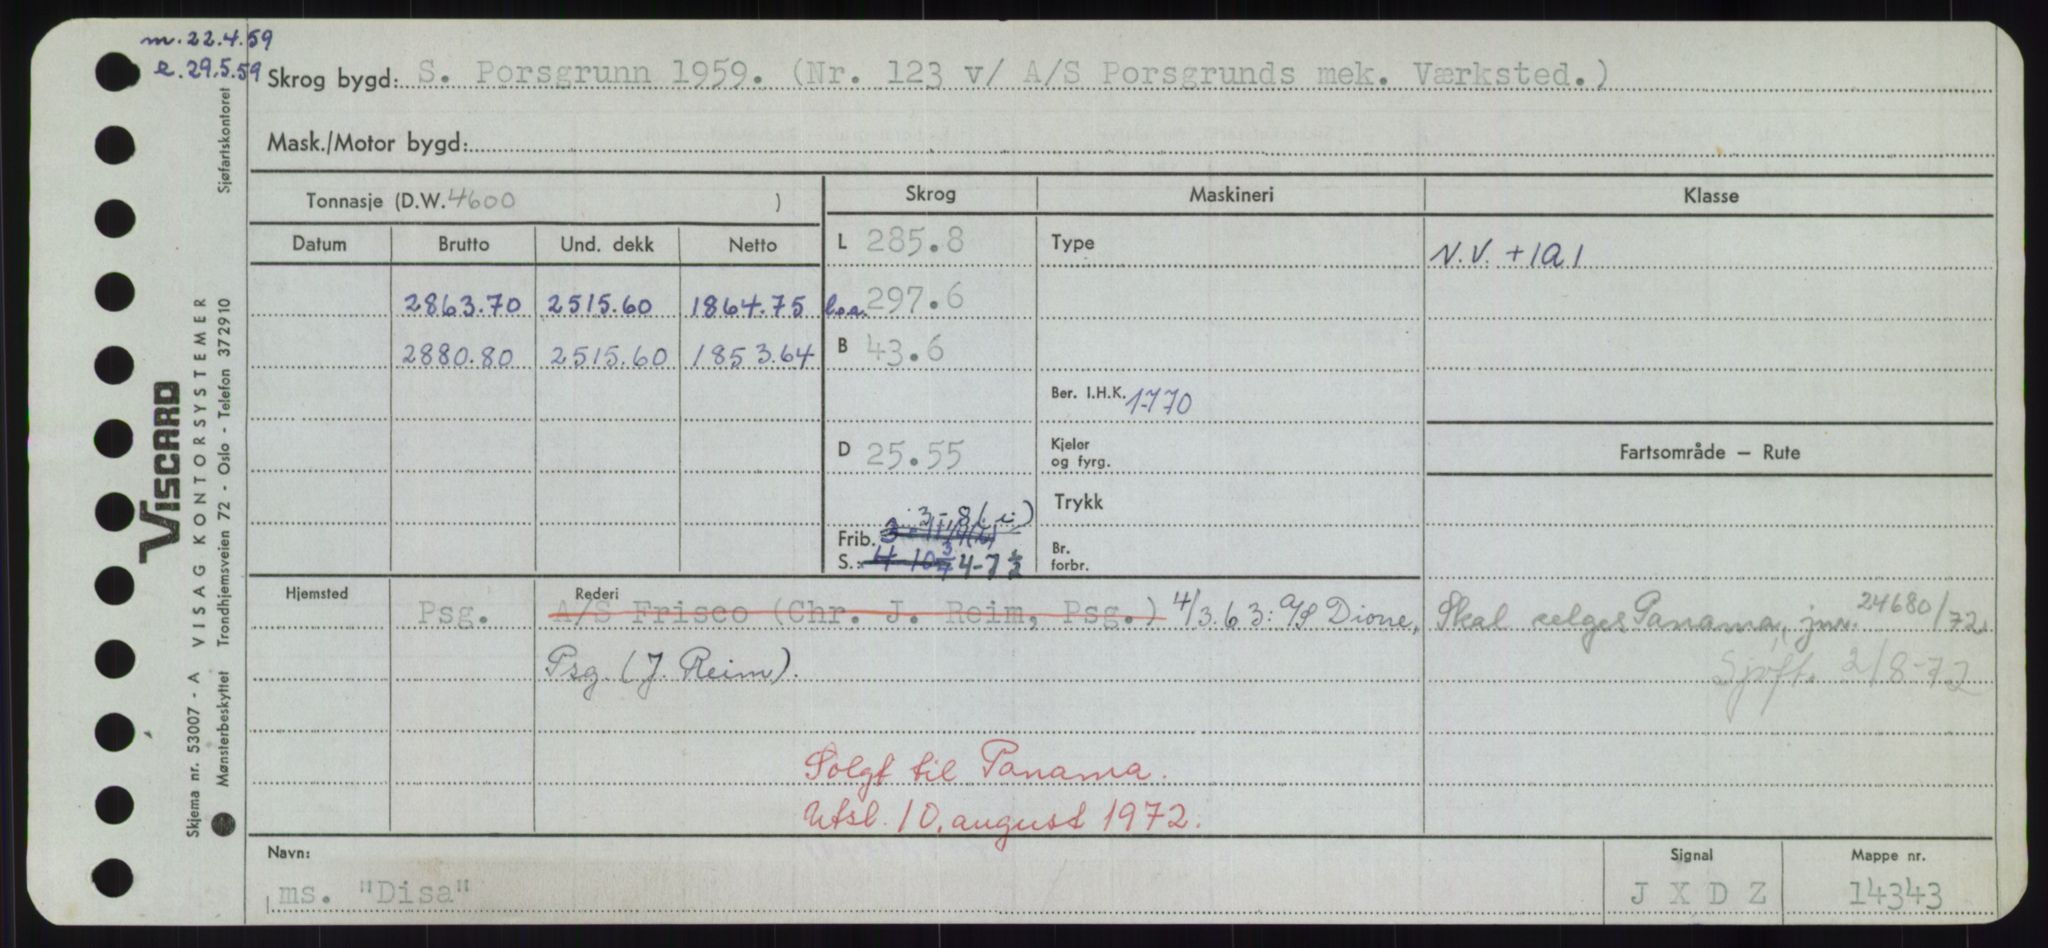 m. 22.4.59
e. 29.5.59
Skrog bygd: S. Porsgrunn 1959. (Nr. 123 v/ A/S Porsgrunds mek. Værksted.)
Mask./Motor bygd:
Tonnasje (D.W. 4600 )
Skrog Maskineri Klasse
Datum Brutto Und. dekk Netto
L 285.8 Type N.V. +1A1
2863.70 2515.60 1864.75 l.o.a. 297.6
2880.80 2515.60 1853.64 B 43.6
Ber. I.H.K. 1770
D 25.55 Kjeler og fyrg. Fartsområde — Rute
Trykk
3-8 (i)
Frib.
S. 4 10 3/4 4-7 1/2 Br. forbr.
Hjemsted Rederi
Psg. A/S Frisco (Chr. J. Reim, Psg.) 4/3.63: A/S Dione, Skal selges Panama, jnr. 24680/72
Psg. (J. Reim). Sjøft. 2/8-72
Solgt til Panama.
Utsl. 10. august 1972.
Navn: Signal Mappe nr.
ms. "Disa" J X D Z 14343
Viscard
VISAG KONTORSYSTEMER
Skjema nr. 53007 - A
Mønsterbeskyttet Trondhjemsveien 72 - Oslo - Telefon 372910 Sjøfartskontoret